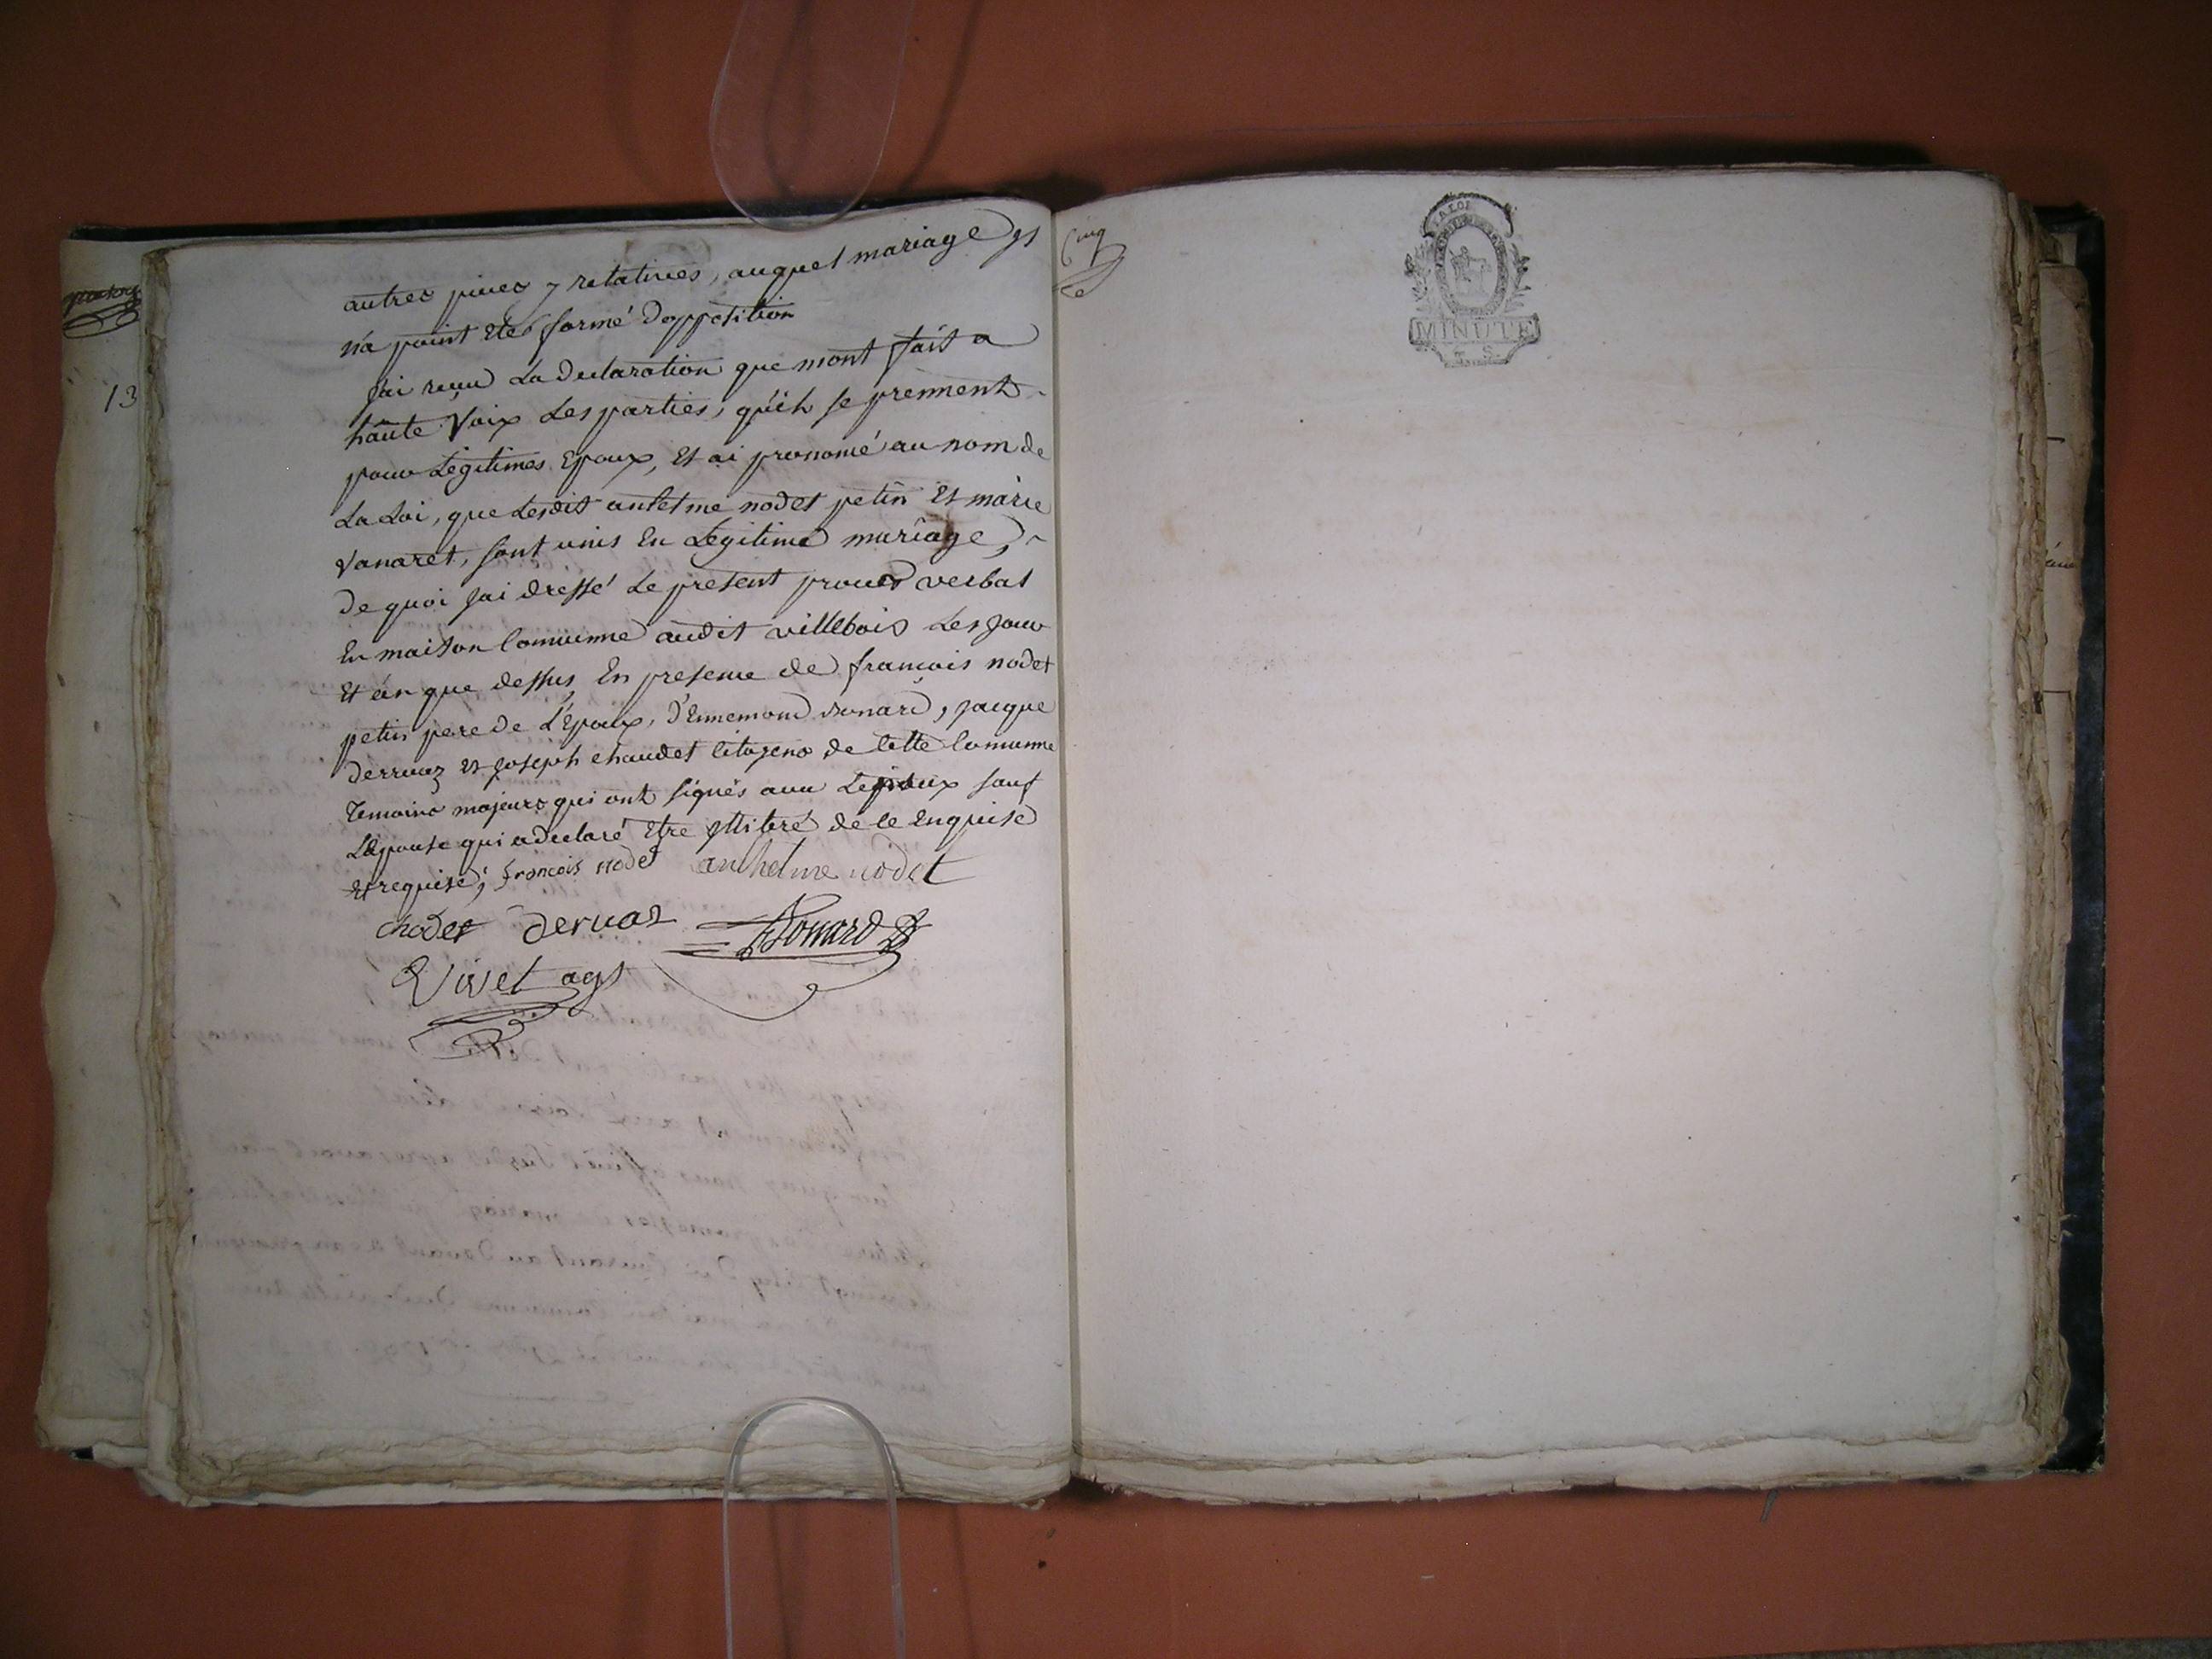 autres pieces y relatives, auquel mariage Il
n'a point eté formé Dopposition
Jai reçu La declaration que mont fait a
haute Voix Les parties, qu'ils se prennent
pour Légitimes Epoux, Et ai prononcé au nom de
La Loi, que Lesdit antelme nodet petin Et marie
Vanaret, sont unis En Legitime mariage,
De quoi Jai dressé Le present procés verbal
En maison Commune audit villebois Les Jour
Et an que dessus, En presence de francois nodet
petin pere de L'Epoux, d'Ennemond bonard, Jacque
derruaz et Joseph chaudet Citoyens de Cette Commune
Temoins majeurs qui ont signés avec Lepoux sauf
L'épouse qui a declaré Etre illiteré de ce Enquise
Et requise; francois nodet anthelme nodet
chodet dervaz Bonard
Vivet agt
13
Cinq
LA LOI
MINUTE